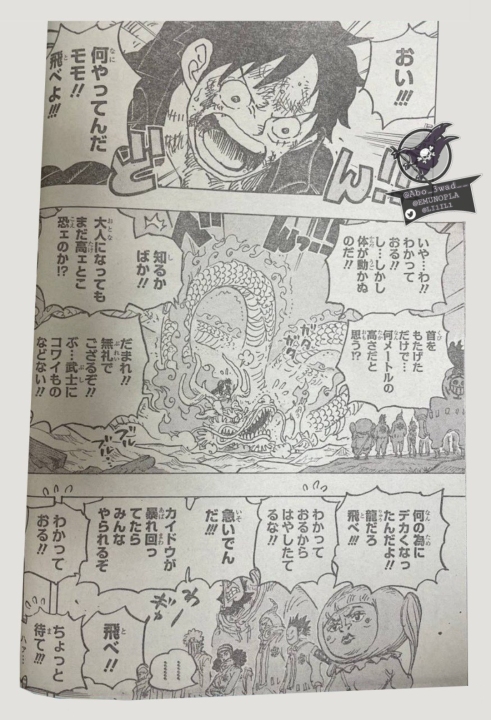 おい!!!
何やってんだ
モモ!!
飛べよ!!!
ドン!!
@Abo_3wad__
@EMUNOPLA
いや…わ!!
わかって
おる!!
し…しかし
体が動かぬ
のだ!!
首を
もたげた
だけで…
何メートルの
高さだと
思う!?
知るか
ばか!!
大人になっても
まだ高ェとこ
恐ェのか!?
だまれ!!
無礼で
ござるぞ!!
ぶ…武士に
コワイもの
などない!!
ガタ
ガタ
ブル
ブル
何の為に
デカくなっ
たんだよ!!
龍だろ
飛べ!!!
わかって
おるから
はやしたて
るな!!
急いでん
だ!!!
カイドウが
暴れ回っ
てたら
みんな
やられるぞ
わかって
おる!!
飛べ!!
ちょっと
待て!!!